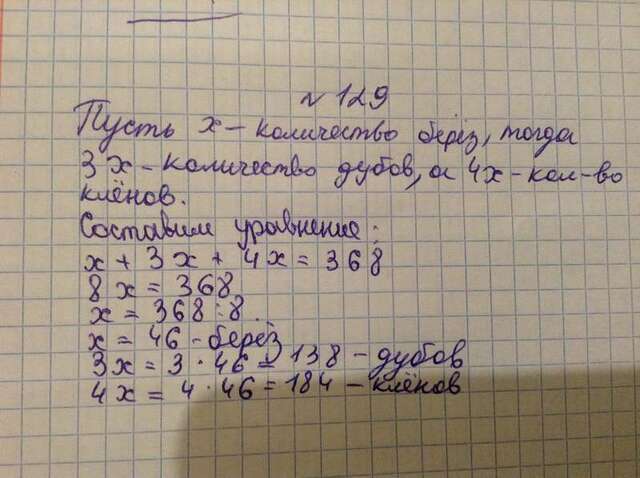 № 129
Пусть x – количество берёз, тогда
3x – количество дубов, а 4x – кол-во
клёнов.
Составим уравнение:
x + 3x + 4x = 368
8x = 368
x = 368 : 8
x = 46 – берёз
3x = 3 · 46 = 138 – дубов
4x = 4 · 46 = 184 – клёнов